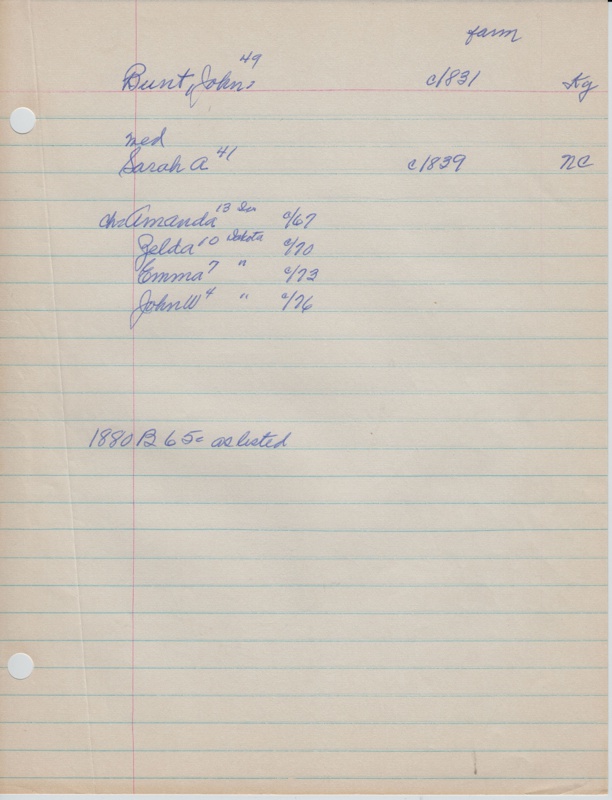 farm
Bunt, John 49 c/1831 Ky
med
Sarah A 41 c/1839 NC
ch: Amanda 13 c/67
Zelda 10 Dakota c/70
Emma 7 " c/73
John W 4 " c/76
1880 B 65c as listed